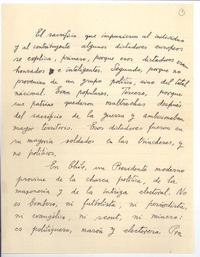 El sacrificio que impusieron al individuo
y al contribuyente algunos dictadores europeos
se explica, primero, porque esos dictadores eran
honrados e inteligentes. Segundo, porque no
provenían de un grupo político, sino del total
nacional. Eran populares. Tercero, porque
sus patrias quedaron maltrechas después
del sacrificio de la guerra y ambicionaban
mayor territorio. Esos dictadores fueron en
su mayoría soldados en las trincheras, y
no políticos.
En Chile, un Presidente moderno
proviene de la charca política, de la
masonería y de la intriga electoral. No
es bombero, ni futbolista, ni periodista,
ni evangélico, ni scout, ni minero:
es politiquero, masón y electorero. Por